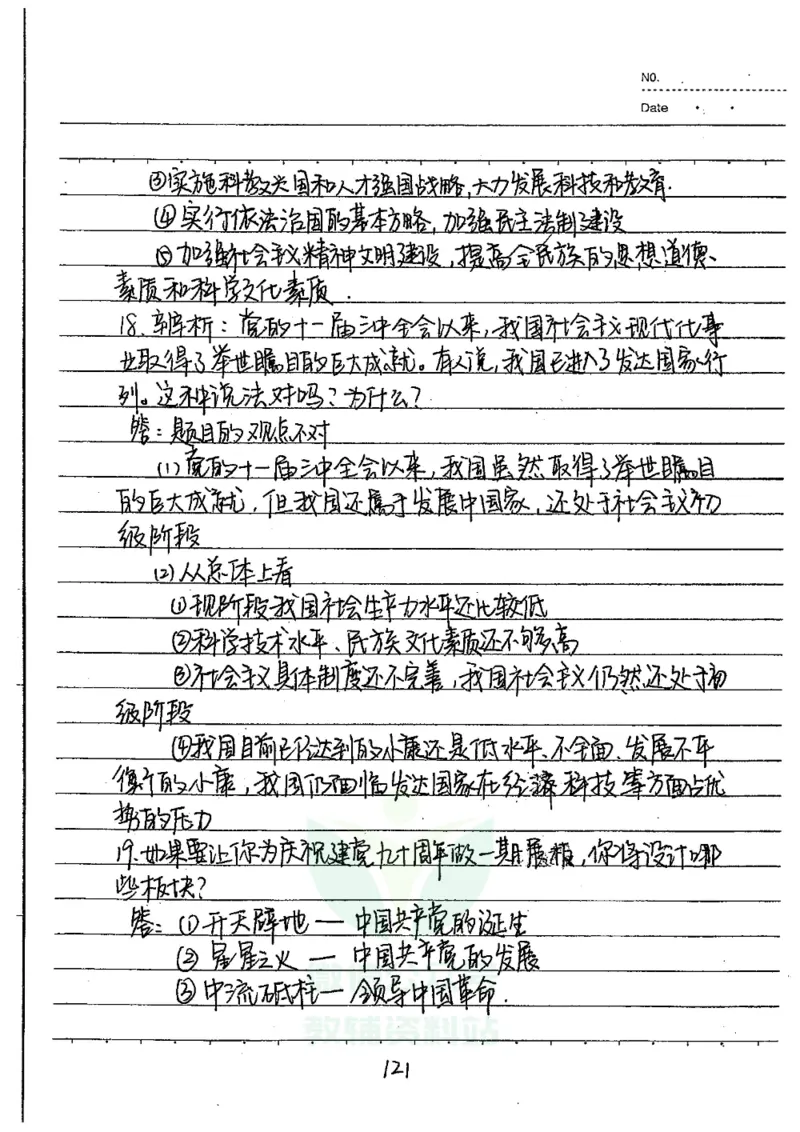 NO.
Date
③实施科教兴国和人才强国战略,大力发展科技和教育.
④实行依法治国的基本方略,加强民主法制建设
⑤加强社会主义精神文明建设,提高全民族的思想道德、
素质和科学文化素质.
18.辨析:党的十一届三中全会以来,我国社会主义现代化事
业取得了举世瞩目的巨大成就。有人说,我国已进入了发达国家行
列。这种说法对吗?为什么?
答:题目的观点不对
(1)党的十一届三中全会以来,我国虽然取得了举世瞩目
的巨大成就,但我国还属于发展中国家,还处于社会主义初
级阶段
(2)从总体上看
①现阶段我国社会生产力水平还比较低
②科学技术水平、民族文化素质还不够高
③社会主义具体制度还不完善,我国社会主义仍然还处于初
级阶段
④我国目前已经达到的小康还是低水平、不全面、发展不平
衡的小康,我国仍面临发达国家在经济科技等方面占优
势的压力
19.如果要让你为庆祝建党九十周年做一期展板,你将设计哪
些板块?
答:①开天辟地—中国共产党的诞生
②星星之火—中国共产党的发展
③中流砥柱—领导中国革命.
教辅资料站
121